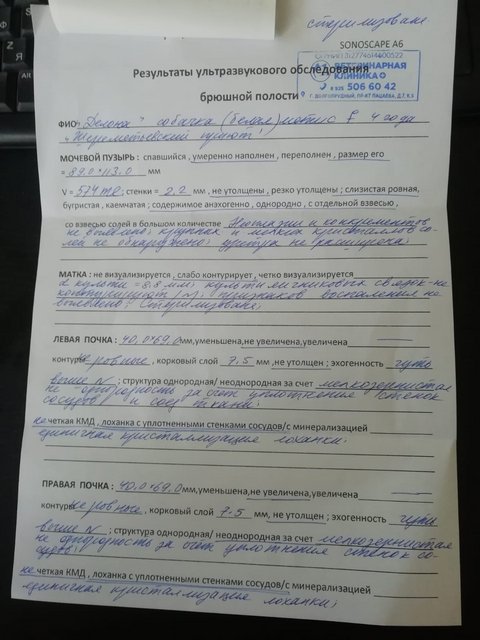 стерилизована
SONOSCAPE A6
ВЕТЕРИНАРНАЯ
КЛИНИКА
8 925 506 60 42
Г. ДОЛГОПРУДНЫЙ, ПР-КТ ПАЦАЕВА, Д.7, К.5
Результаты ультразвукового обследования
брюшной полости
ФИО „Делона" собачка (белая) метис F 4 года
„Шереметьевский приют"
МОЧЕВОЙ ПУЗЫРЬ : спавшийся , умеренно наполнен , переполнен , размер его
= 89.0*113.0 мм
V = 574 ml, стенки = 2.2 мм , не утолщены , резко утолщены ; слизистая ровная,
бугристая , каемчатая ; содержимое анэхогенно , однородно , с отдельной взвесью ,
со взвесью солей в большом количестве Неоплазии и конкрементов
не выявлено; крупных и мелких кристаллов со-
лей не обнаружено; уретра не расширена;
МАТКА : не визуализируется , слабо контурирует , четко визуализируется
d культи = 8.8 мм; культи яичниковых связок - не
контурируют (N); признаков воспаления не
выявлено; Стерилизована;
ЛЕВАЯ ПОЧКА : 40.0*69.0 мм,уменьшена,не увеличена,увеличена
контуры не ровные , корковый слой 7.5 мм ,не утолщен ; эхогенность чуть
выше N ; структура однородная/ неоднородная за счет мелкозернистая
не однородность за счет уплотнения стенок
сосудов и соед. ткани;
не четкая КМД , лоханка с уплотненными стенками сосудов/с минерализацией
единичная кристаллизация лоханки;
ПРАВАЯ ПОЧКА : 40.0*69.0 мм,уменьшена,не увеличена,увеличена
контуры не ровные , корковый слой 7.5 мм , не утолщен ; эхогенность чуть
выше N ; структура однородная/ неоднородная за счет мелкозернистая
не однородность за счет уплотнения стенок со-
судов;
не четкая КМД , лоханка с уплотненными стенками сосудов/с минерализацией
единичная кристаллизация лоханки;